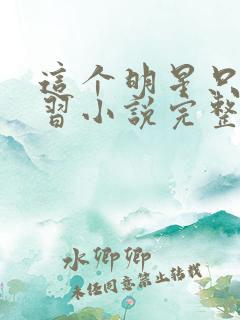 這个明星只
習小說完整
水卿卿
未经同意禁止转载